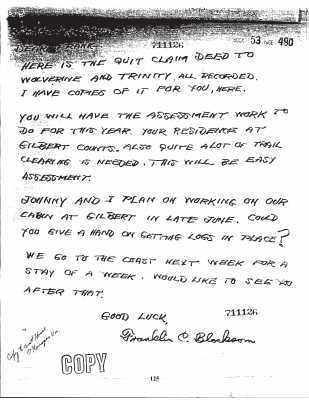 DEAR FRANK, 711126 53 PAGE 490
HERE IS THE QUIT CLAIM DEED TO
WOLVERINE AND TRINITY, ALL RECORDED.
I HAVE COPIES OF IT FOR YOU, HERE.
YOU WILL HAVE THE ASSESSMENT WORK TO
DO FOR THIS YEAR. YOUR RESIDENCE AT
GILBERT COUNTS. ALSO QUITE A LOT OF TRAIL
CLEARING IS NEEDED. THIS WILL BE EASY
ASSESSMENT.
JOHNNY AND I PLAN ON WORKING ON OUR
CABIN AT GILBERT IN LATE JUNE. COULD
YOU GIVE A HAND ON GETTING LOGS IN PLACE?
WE GO TO THE COAST NEXT WEEK FOR A
STAY OF A WEEK. WOULD LIKE TO SEE YOU
AFTER THAT.
GOOD LUCK, 711126
Franklin C. Blocksom
COPY
125